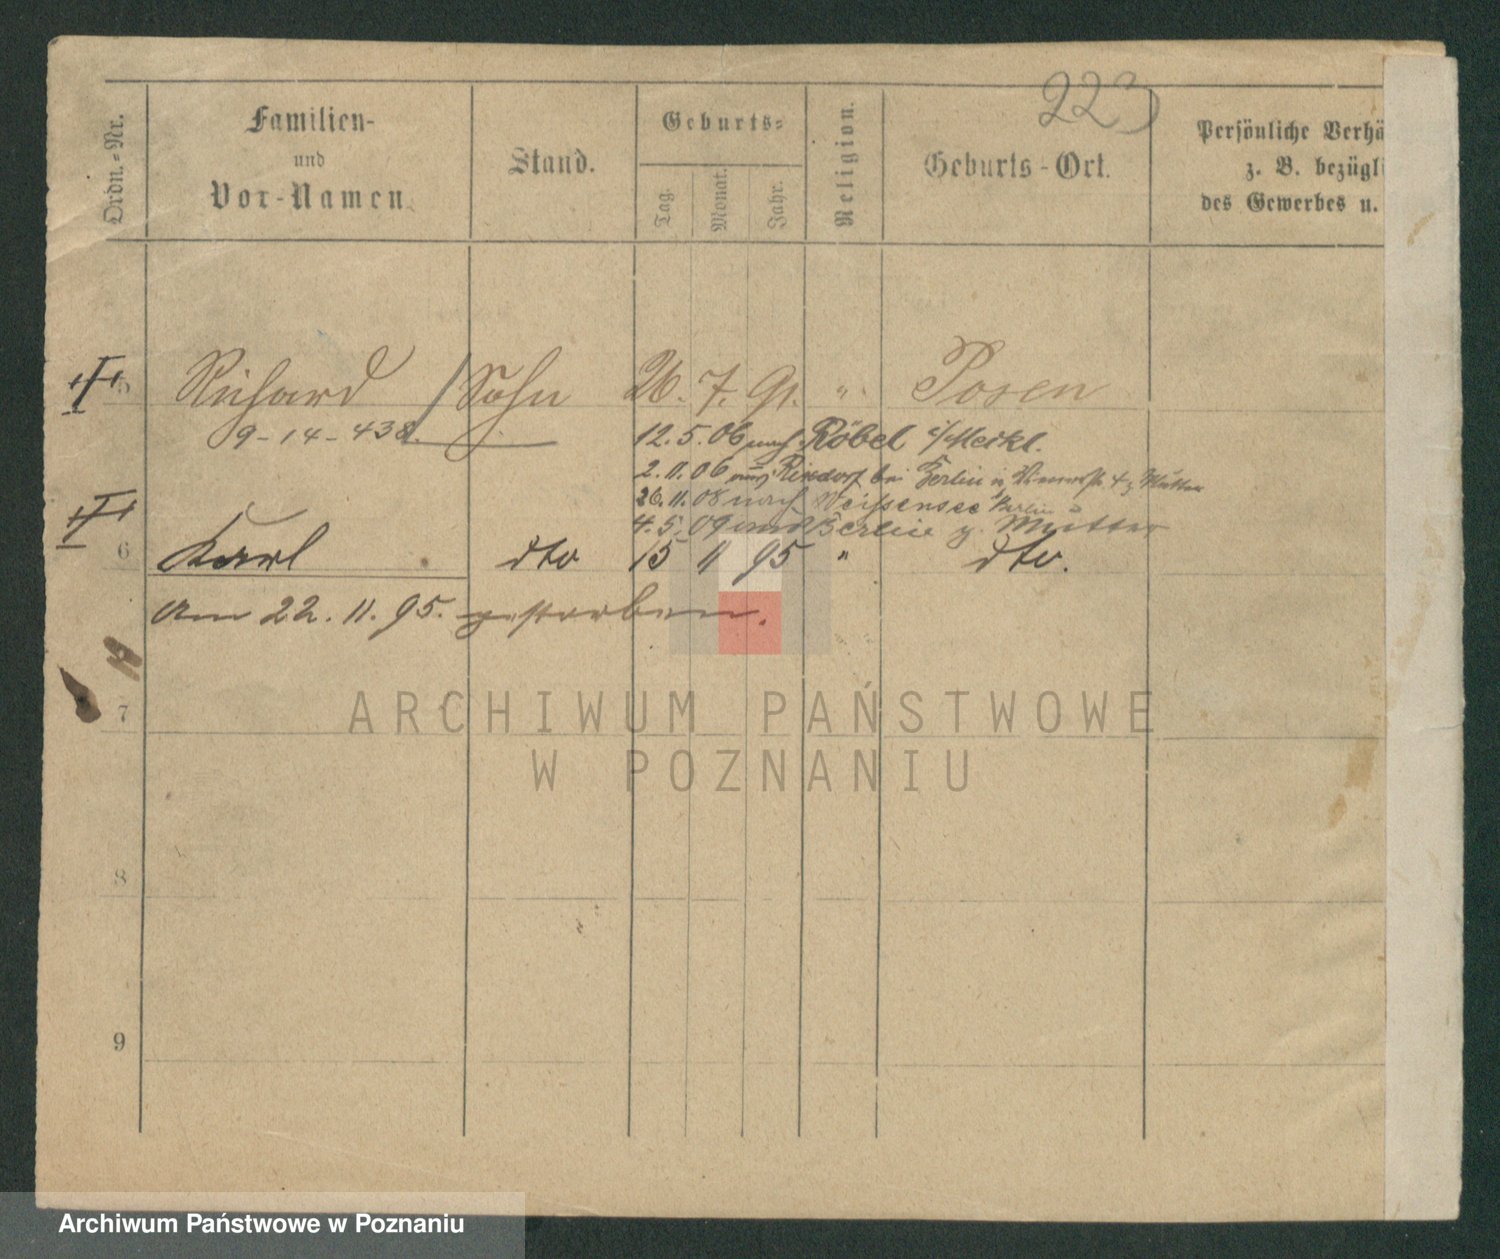 223
Ordn.-Nr.
Familien-
und
Vor-Namen.
Stand.
Geburts-
Tag.
Monat.
Jahr.
Religion.
Geburts-Ort.
Persönliche Verhä
z. B. bezügli
des Gewerbes u.
5 Richard Sohn 26. 7. 91. " Posen
9-14-438.
12. 5. 06 nach Röbel i/Meckl.
2. 11. 06 nach Rixdorf bei Berlin z. Mutter
26. 11. 08 nach Weißensee b/Berlin
4. 5. 09 nach Berlin z. Mutter
6 Karl dto 15 11 95 " dto.
Am 22. 11. 95. gestorben.
7
8
9
ARCHIWUM PAŃSTWOWE
W POZNANIU
Archiwum Państwowe w Poznaniu